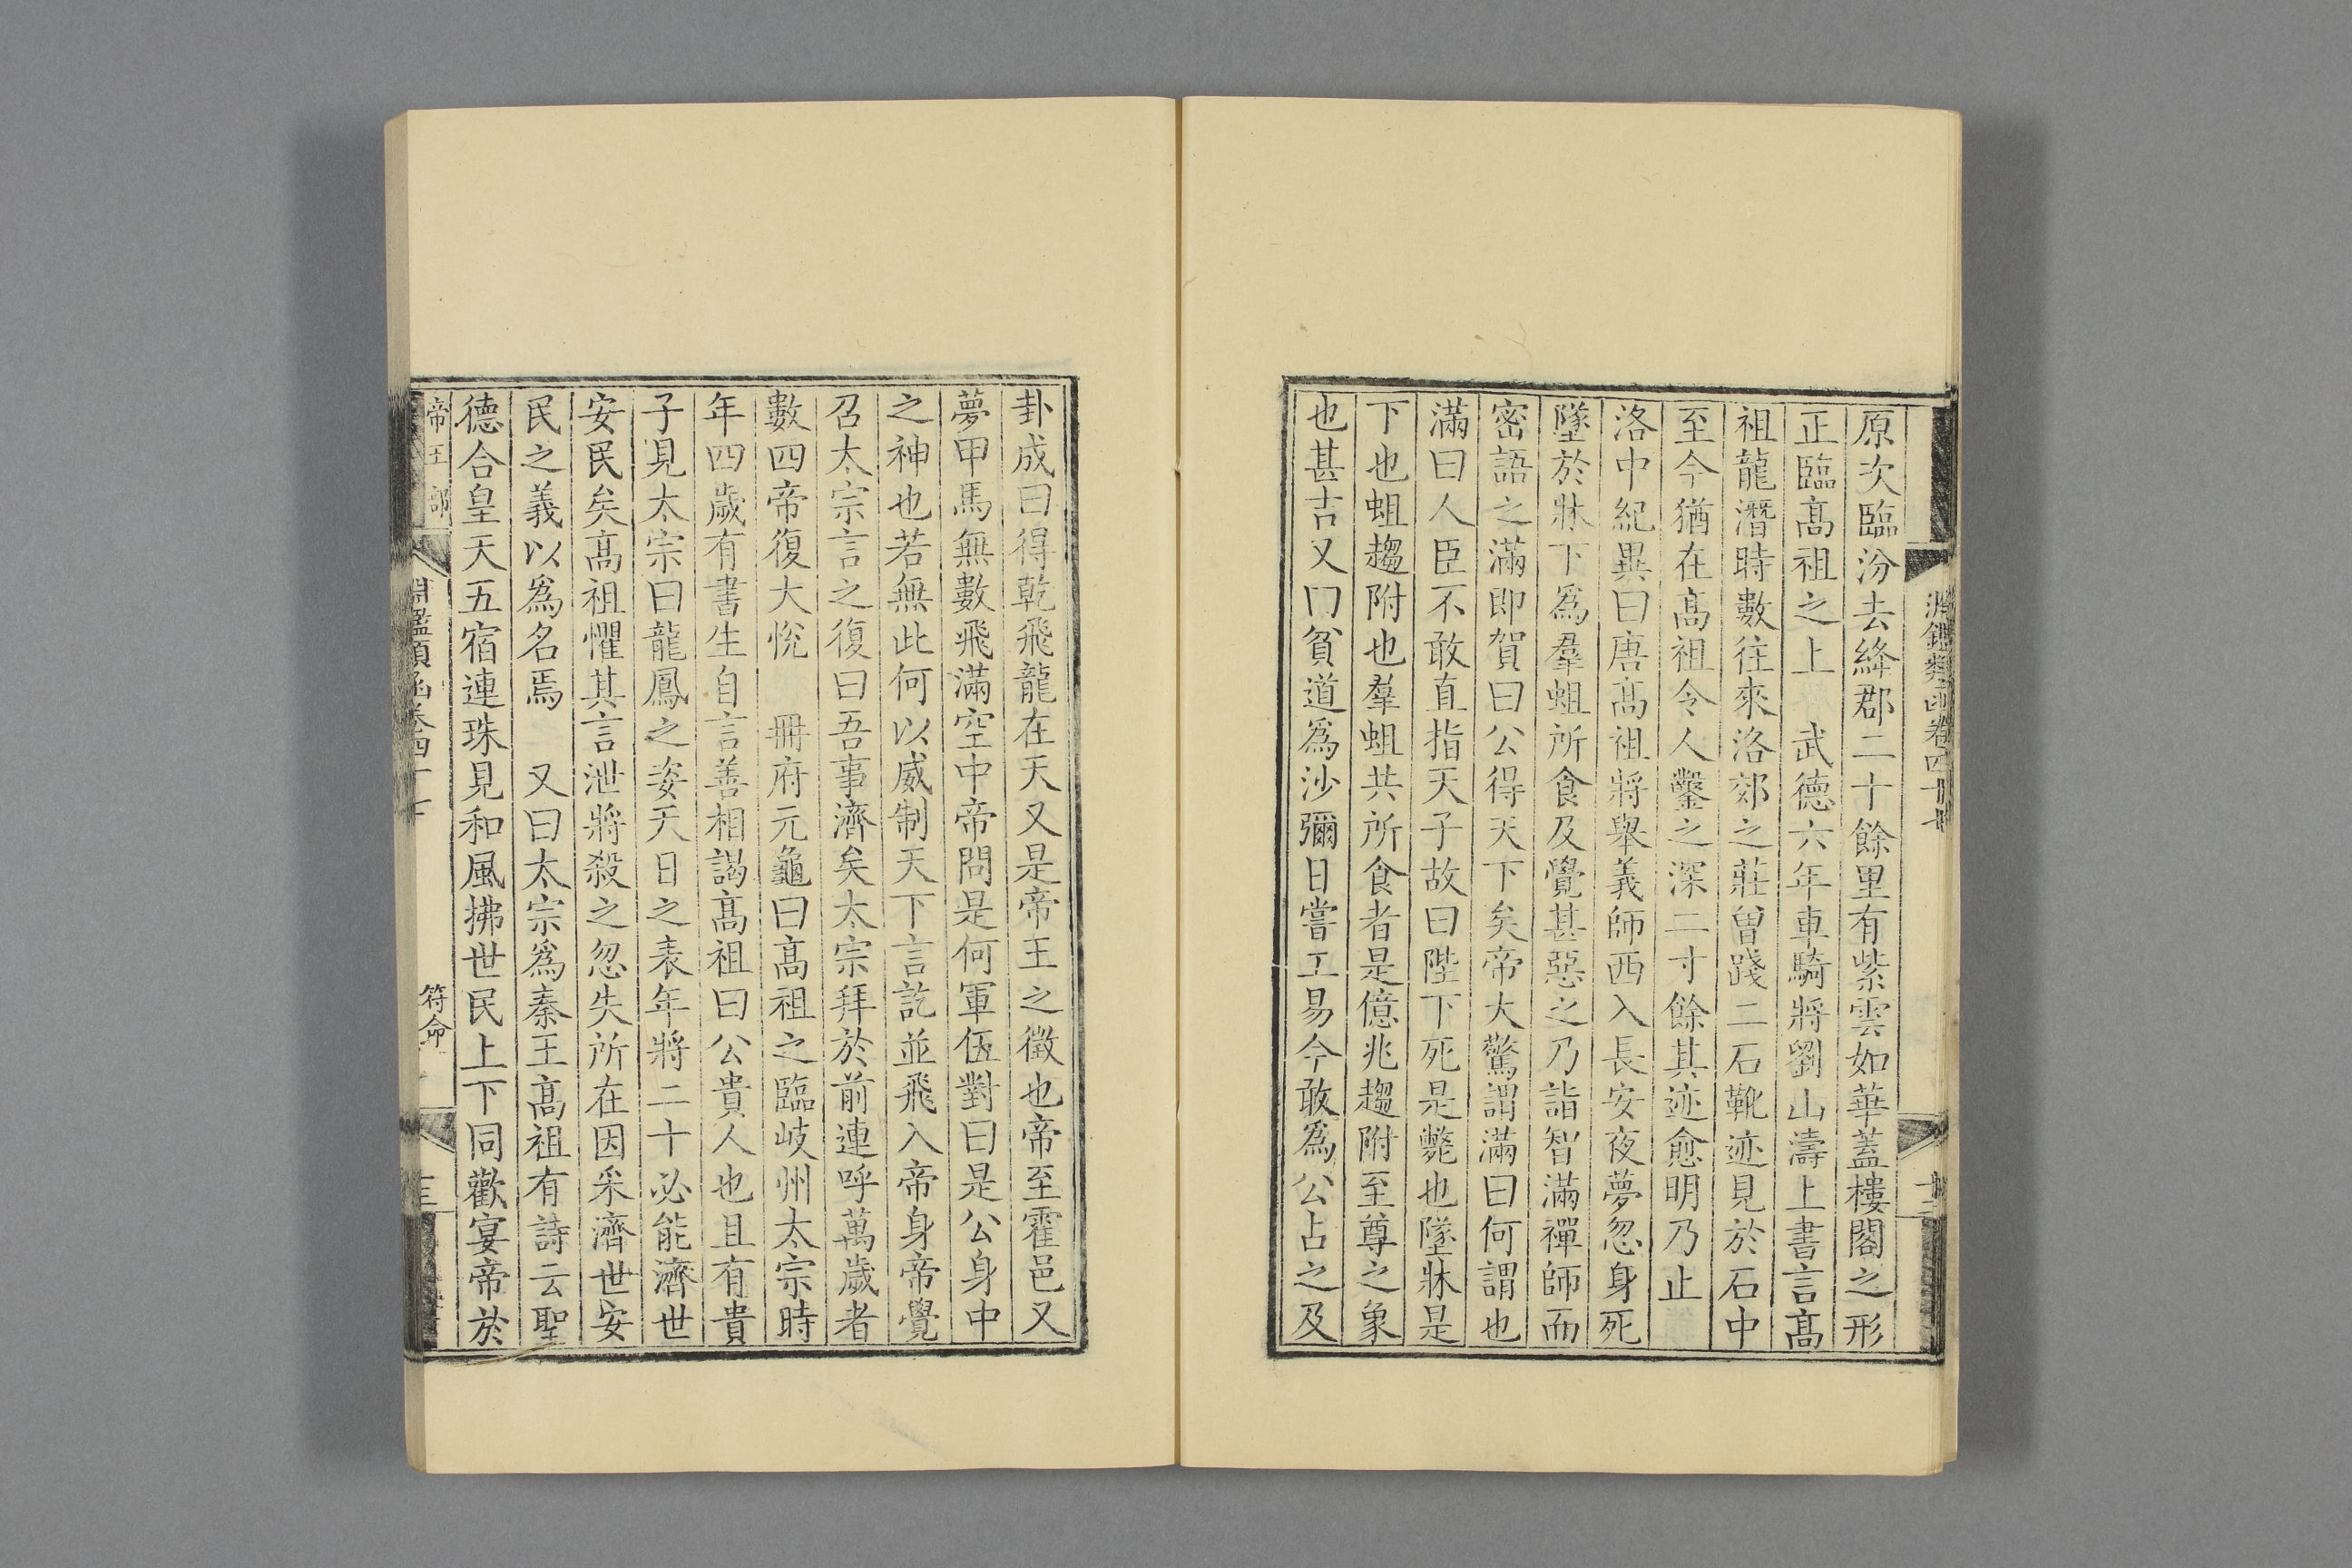 原次臨汾去絳郡二十餘里有紫雲如華蓋樓閣之形
正臨髙祖之上　武德六年車騎將劉山濤上書言髙
祖龍潛時數往來洛郊之莊曽踐二石靴迹見於石中
至今猶在髙祖令人鑿之深二寸餘其迹愈明乃止
洛中紀異曰唐髙祖將舉義師西入長安夜夢忽身死
墜於牀下爲羣蛆所食及覺甚惡之乃詣智滿禪師而
密語之滿即賀曰公得天下矣帝大驚謂滿曰何謂也
滿曰人臣不敢直指天子故曰陛下死是斃也墜牀是
下也蛆趨附也羣蛆共所食者是億兆趨附至尊之象
也甚吉又曰貧道爲沙彌日嘗工易今敢爲公占之及
卦成曰得乾飛龍在天又是帝王之徵也帝至霍邑又
夢甲馬無數飛滿空中帝問是何軍伍對曰是公身中
之神也若無此何以威制天下言訖並飛入帝身帝覺
召太宗言之復曰吾事濟矣太宗拜於前連呼萬歲者
數四帝復大悅　冊府元龜曰髙祖之臨岐州太宗時
年四歲有書生自言善相謁髙祖曰公貴人也且有貴
子見太宗曰龍鳳之姿天日之表年將二十必能濟世
安民矣髙祖懼其言泄將殺之忽失所在因采濟世安
民之義以爲名焉　又曰太宗爲秦王髙祖有詩云聖
德合皇天五宿連珠見和風拂世民上下同歡宴帝於
帝王部
淵鑑類函卷四十
符命